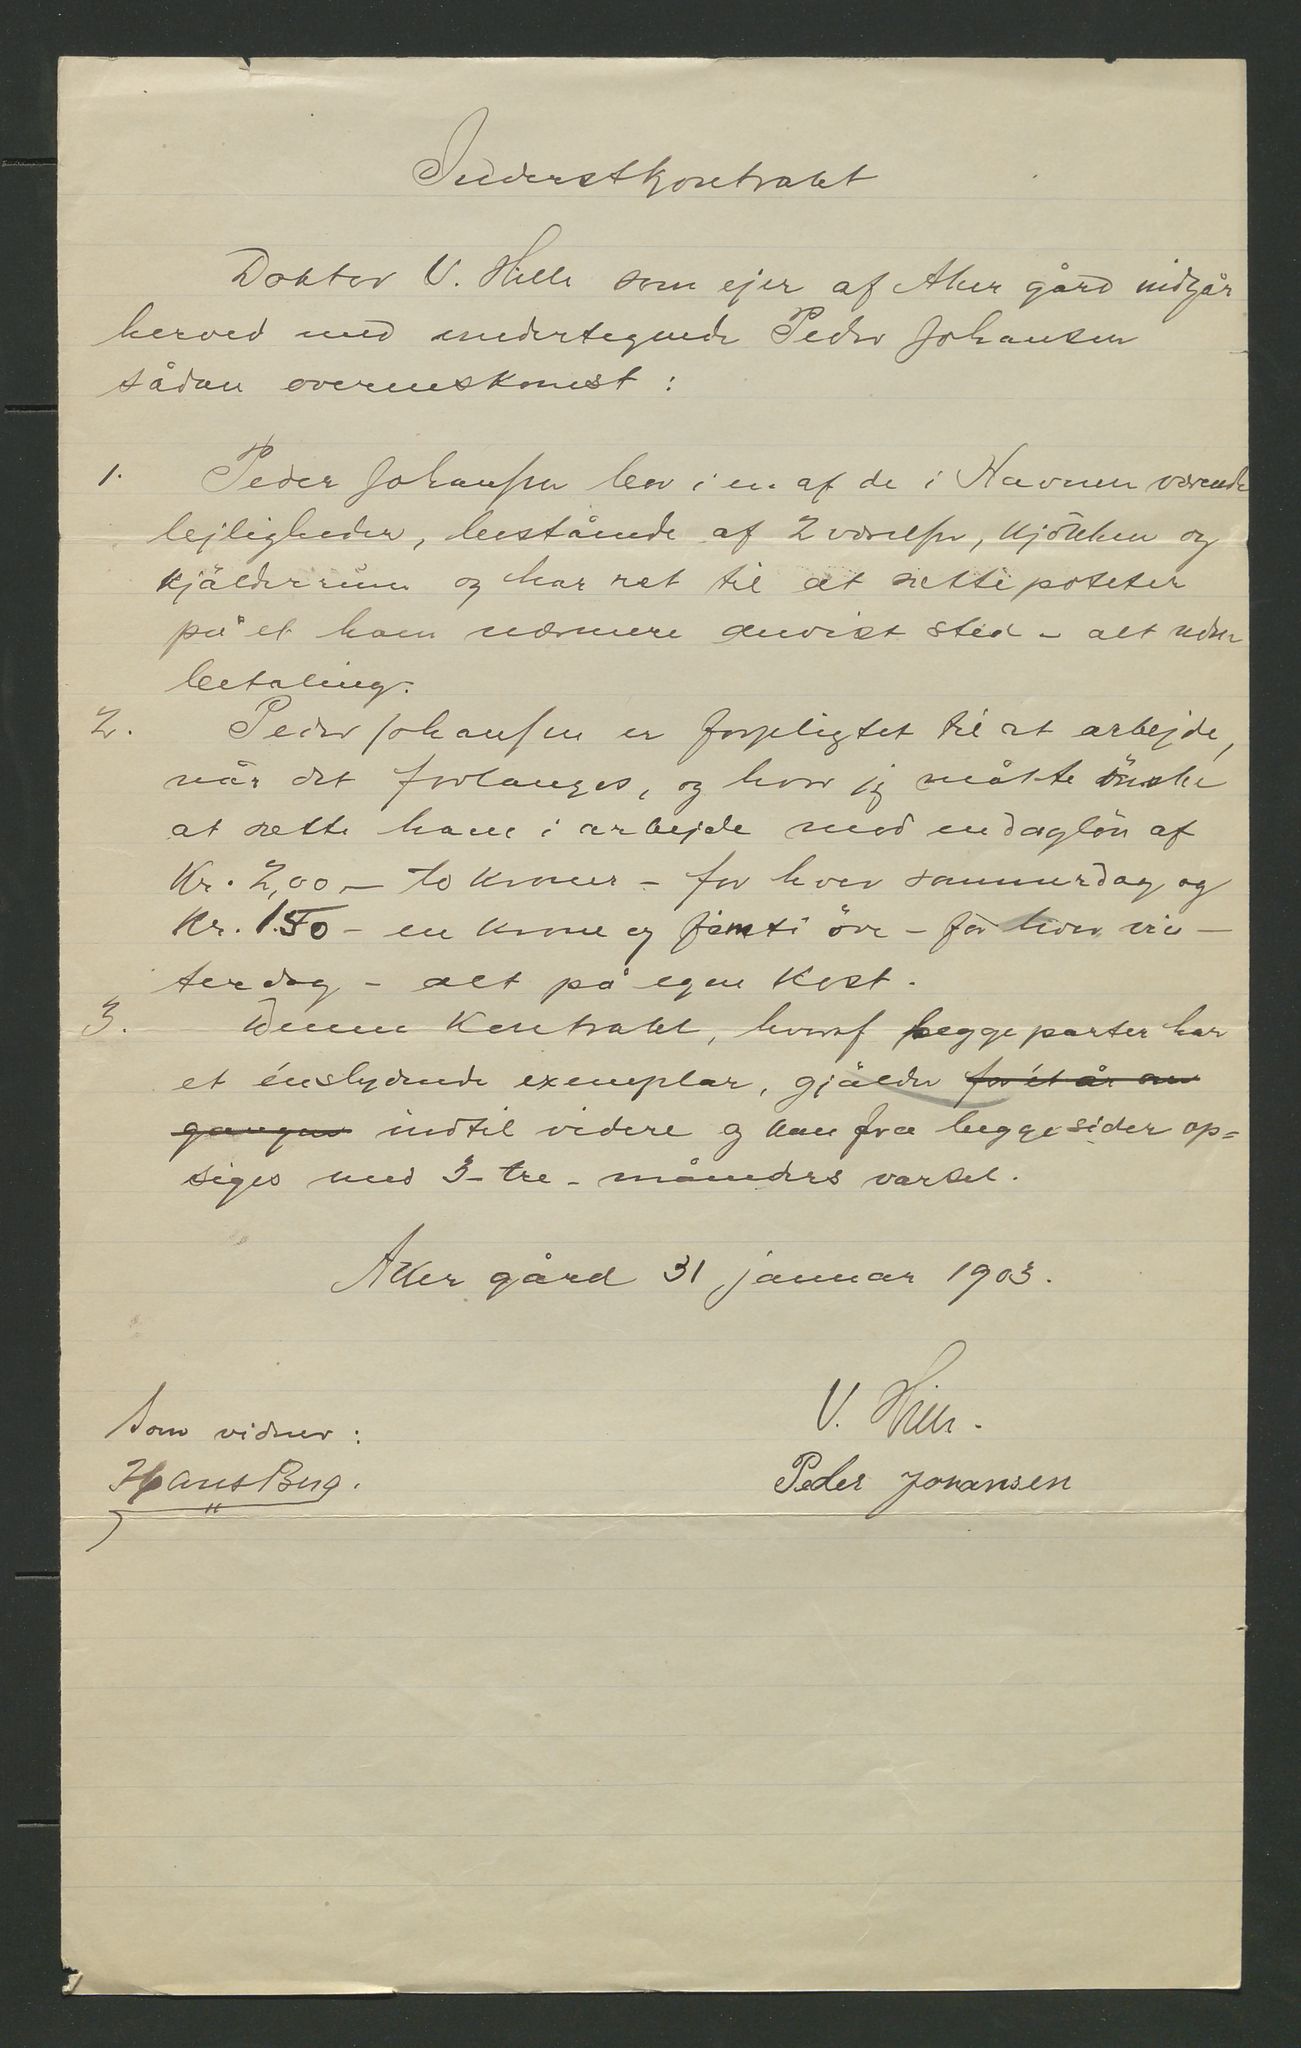 Inderstkontrakt
Doktor V. Hille som ejer af Aker gård indgår
herved med undertegnede Peder Johansen
sådan overenskomst:
1. Peder Johanssen bor i en af de i Havnen værende
lejligheder, bestående af 2 værelser, kjökken og
kjälderrum og har ret til at sette poteter
på et ham nærmere anvist sted - alt uden
betaling.
2. Peder Johanssen er forpligtet til at arbejde,
når det forlanges, og hvor jeg måtte önske
at sette ham i arbejde mod en daglön af
Kr. 2,00 - to kroner - for hver sommerdag og
Kr. 1.50 - en krone og femti öre - for hver vin-
terdag - alt på egen kost.
3. Denne kontrakt, hvoraf begge parter har
et énslydende exemplar, gjälder for ét år om
gangen indtil videre og kan fra begge sider op=
siges med 3 - tre - måneders varsel.
Aker gård 31 januar 1903.
V. Hille.
Som vidner:
Peder Johansen
Hans Berg.